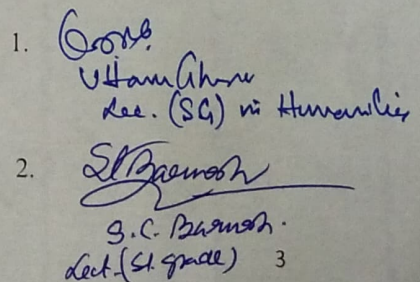 1.
Uttam Ghose
Lec. (SG) in Humanities
2. SC Barman
S.C. Barman.
Lect. (Sl. grade) 3